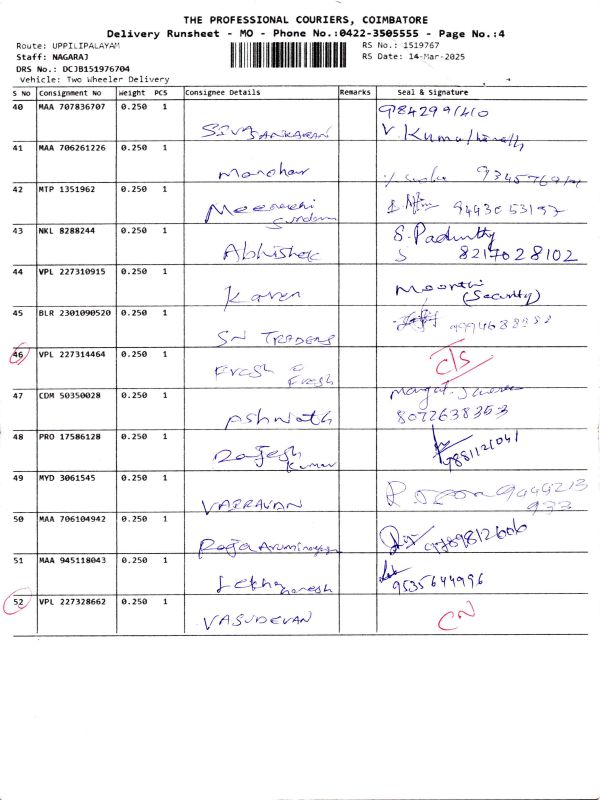 THE PROFESSIONAL COURIERS, COIMBATORE
Delivery Runsheet - MO - Phone No.:0422-3505555 - Page No.:4
Route: UPPILIPALAYAM RS No.: 1519767
Staff: NAGARAJ RS Date: 14-Mar-2025
DRS No.: DCJB151976704
Vehicle: Two Wheeler Delivery
S No Consignment No Weight PCS Consignee Details Remarks Seal & Signature
40 MAA 707836707 0.250 1
SIVA SANKARAN V. Kuma
41 MAA 706261226 0.250 1
Manohar
42 MTP 1351962 0.250 1
Meenachi Sundaram 9443053197
43 NKL 8288244 0.250 1 S.
Abhishek 8217028102
44 VPL 227310915 0.250 1 Moorthi
Karen (Security)
45 BLR 2301090520 0.250 1
SN TRADERS
46 VPL 227314464 0.250 1 C/S
Fresh 2 Fresh
47 CDM 50350028 0.250 1
Ashwath 8072638353
48 PRO 17586128 0.250 1
Rajesh Kumar 9881121041
49 MYD 3061545 0.250 1
VAIRAVAN 9444213
933
50 MAA 706104942 0.250 1
Raja Aruminayagam 9789812606
51 MAA 945118043 0.250 1
Lekha naresh 9535644996
52 VPL 227328662 0.250 1
VASUDEVAN CN